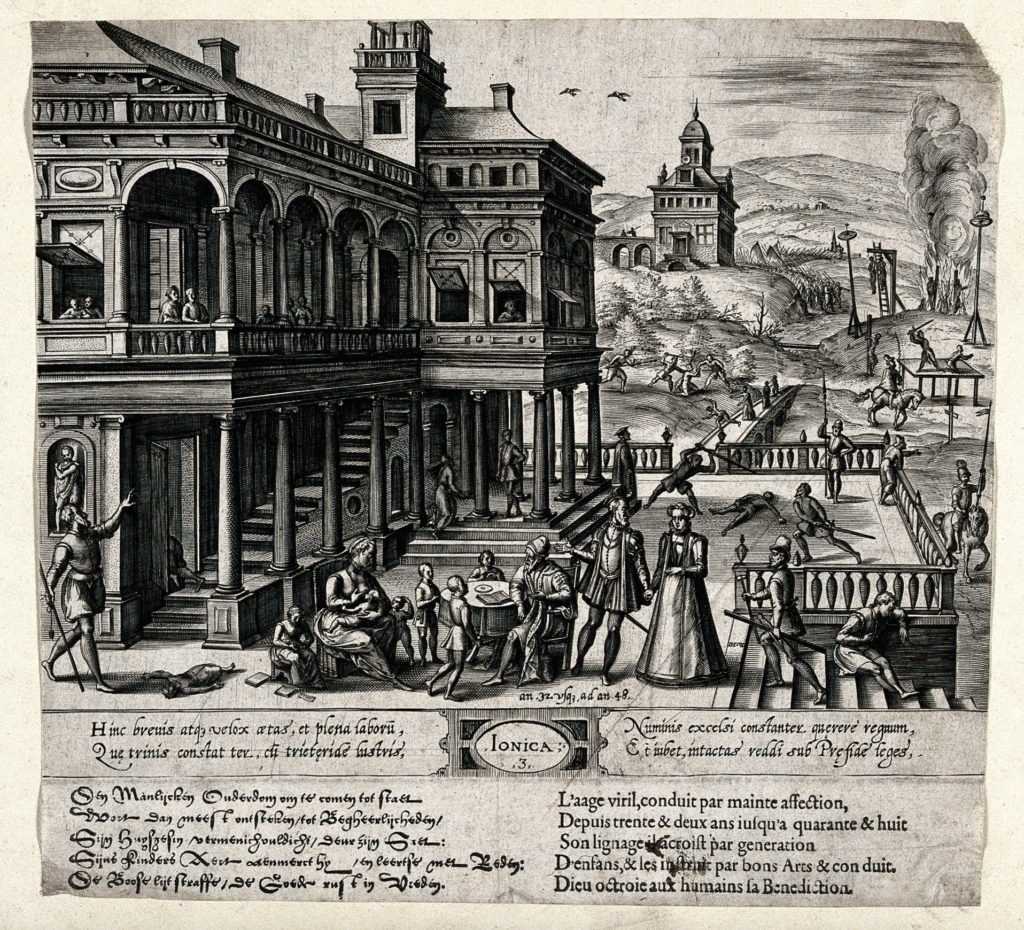 an. 32. usq; ad an 48.
Hinc brevis atq; velox ætas, et plena laborū,
Que trinis constat ter, cū trieteride lustris,
IONICA;
.3.
Numinis excelsi constanter querere regnum,
Et iubet, intactas reddi sub Preside leges,
Den Manlijcken Ouderdom om te comen tot staet
Wort dan meest ontsteken, tot Begheerlijcheden,
Sijn Huyshesin vermenichvuldicht, deur zijn
Sijns Kinders Aert aenmerct hy en leertse met Reden:
De Boose lijt straffe, de Goede rust in Vreden.
L'aage viril, conduit par mainte affection,
Depuis trente & deux ans iusqu'a quarante & huit
Son lignage il acroist par generation
D'enfans, & les instruit par bons Arts & conduit.
Dieu octroie aux humains sa Benediction.